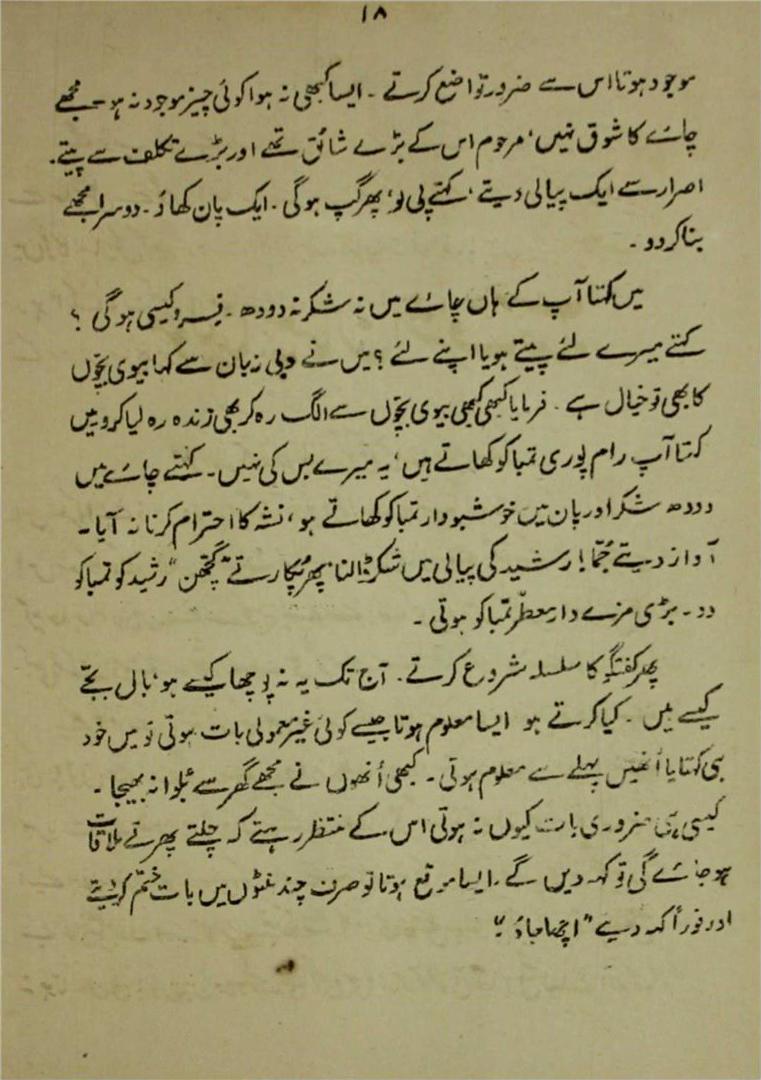 ۱۸
موجود ہوتا اس سے ضرور تواضع کرتے ۔ ایسا کبھی نہ ہوا کوئی چیز موجود نہ ہو ۔ مجھے
چائے کا شوق نہیں، مرحوم اس کے بڑے شائق تھے اور بڑے تکلف سے پیتے۔
اصرار سے ایک پیالی دیتے، کہتے پی لو، پھر گپ ہوگی ۔ ایک پان کھاؤ ۔ دوسرا مجھے
بنا کر دو ۔
میں کہتا آپ کے ہاں چائے میں نہ شکر نہ دودھ ۔ کیسی ہوگی ؟
کہتے میرے لئے پیتے ہو یا اپنے لئے ؟ میں نے دبی زبان سے کہا بیوی بچّوں
کا بھی تو خیال ہے ۔ فرمایا کبھی کبھی بیوی بچّوں سے الگ رہ کر بھی زندہ رہ لیا کرو میں
کہتا آپ رام پوری تمباکو کھاتے ہیں، یہ میرے بس کی نہیں ۔ کہتے چائے میں
دودھ شکر اور پان میں خوشبودار تمباکو کھاتے ہو، نشہ کا احترام کرنا نہ آیا ۔
آواز دیتے جُمّا! رشید کی پیالی میں شکر ڈالنا پھر پُکارتے "گچّھن" رشید کو تمباکو
دو ۔ بڑی مزے دار معطّر تمباکو ہوتی ۔
پھر گفتگو کا سلسلہ شروع کرتے ۔ آج تک یہ نہ پوچھا کیسے ہو، بال بچّے
کیسے ہیں ۔ کیا کرتے ہو ایسا معلوم ہوتا جیسے کوئی غیر معمولی بات ہوتی تو میں خود
ہی کہتا یا اُنھیں پہلے سے معلوم ہوتی ۔ کبھی اُنھوں نے مجھے گھر سے بُلوا نہ بھیجا ۔
کیسی ہی ضروری بات کیوں نہ ہوتی اس کے منتظر رہتے کہ چلتے پھرتے ملاقات
ہو جائے گی تو کہہ دیں گے ۔ ایسا موقع ہوتا تو صرف چند منٹوں میں بات ختم کر دیتے
اور فوراً کہہ دیتے "اچھا جاؤ"۔